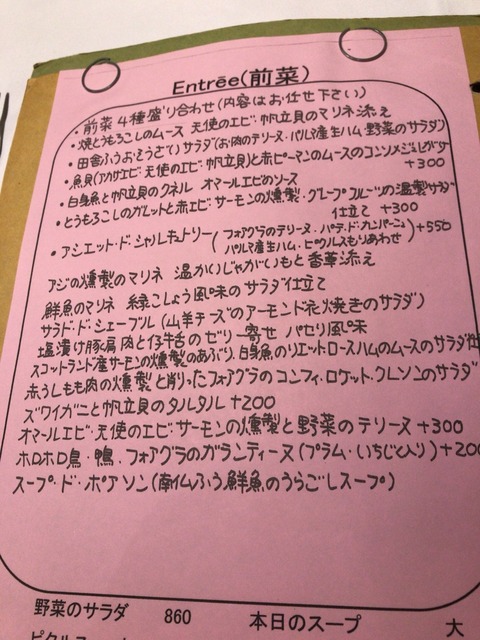 Entrée(前菜)
・前菜4種盛り合わせ(内容はお任せ下さい)
・焼とうもろこしのムース 天使のエビ・帆立貝のマリネ添え
・田舎ふうおそうざい サラダ(お肉のテリーヌ・パルマ産生ハム・野菜のサラダ)
・魚貝(アカザエビ・天使のエビ・帆立貝)と赤ピーマンのムースのコンソメジュレ
+300
・白身魚と帆立貝のクネル オマールエビのソース
・とうもろこしのガレットと赤エビ・サーモンの燻製・グレープフルーツの温製サラダ
仕立て +300
・アシェット・ド・シャルキュトリー(フォアグラのテリーヌ・パテ・ド・カンパーニュ
パルマ産生ハム・ピクルスもりあわせ) +550
アジの燻製のマリネ 温かいじゃがいもと香草添え
鮮魚のマリネ 緑こしょう風味のサラダ仕立て
サラド・ド・シェーブル(山羊チーズのアーモンド衣焼きのサラダ)
塩漬け豚肩肉と仔牛舌のゼリー寄せ パセリ風味
スコットランド産サーモンの燻製のあぶり・白身魚のリエット・ロースハムのムースのサラダ仕
赤うしもも肉の燻製と削ったフォアグラのコンフィ・ロケット・クレソンのサラダ
ズワイガニと帆立貝のタルタル +200
オマールエビ・天使のエビ・サーモンの燻製と野菜のテリーヌ +300
ホロホロ鳥・鴨・フォアグラのガランティーヌ(プラム・いちじく入り) +200
スープ・ド・ポアソン(南仏ふう鮮魚のうらごしスープ)
野菜のサラダ 860 本日のスープ 大